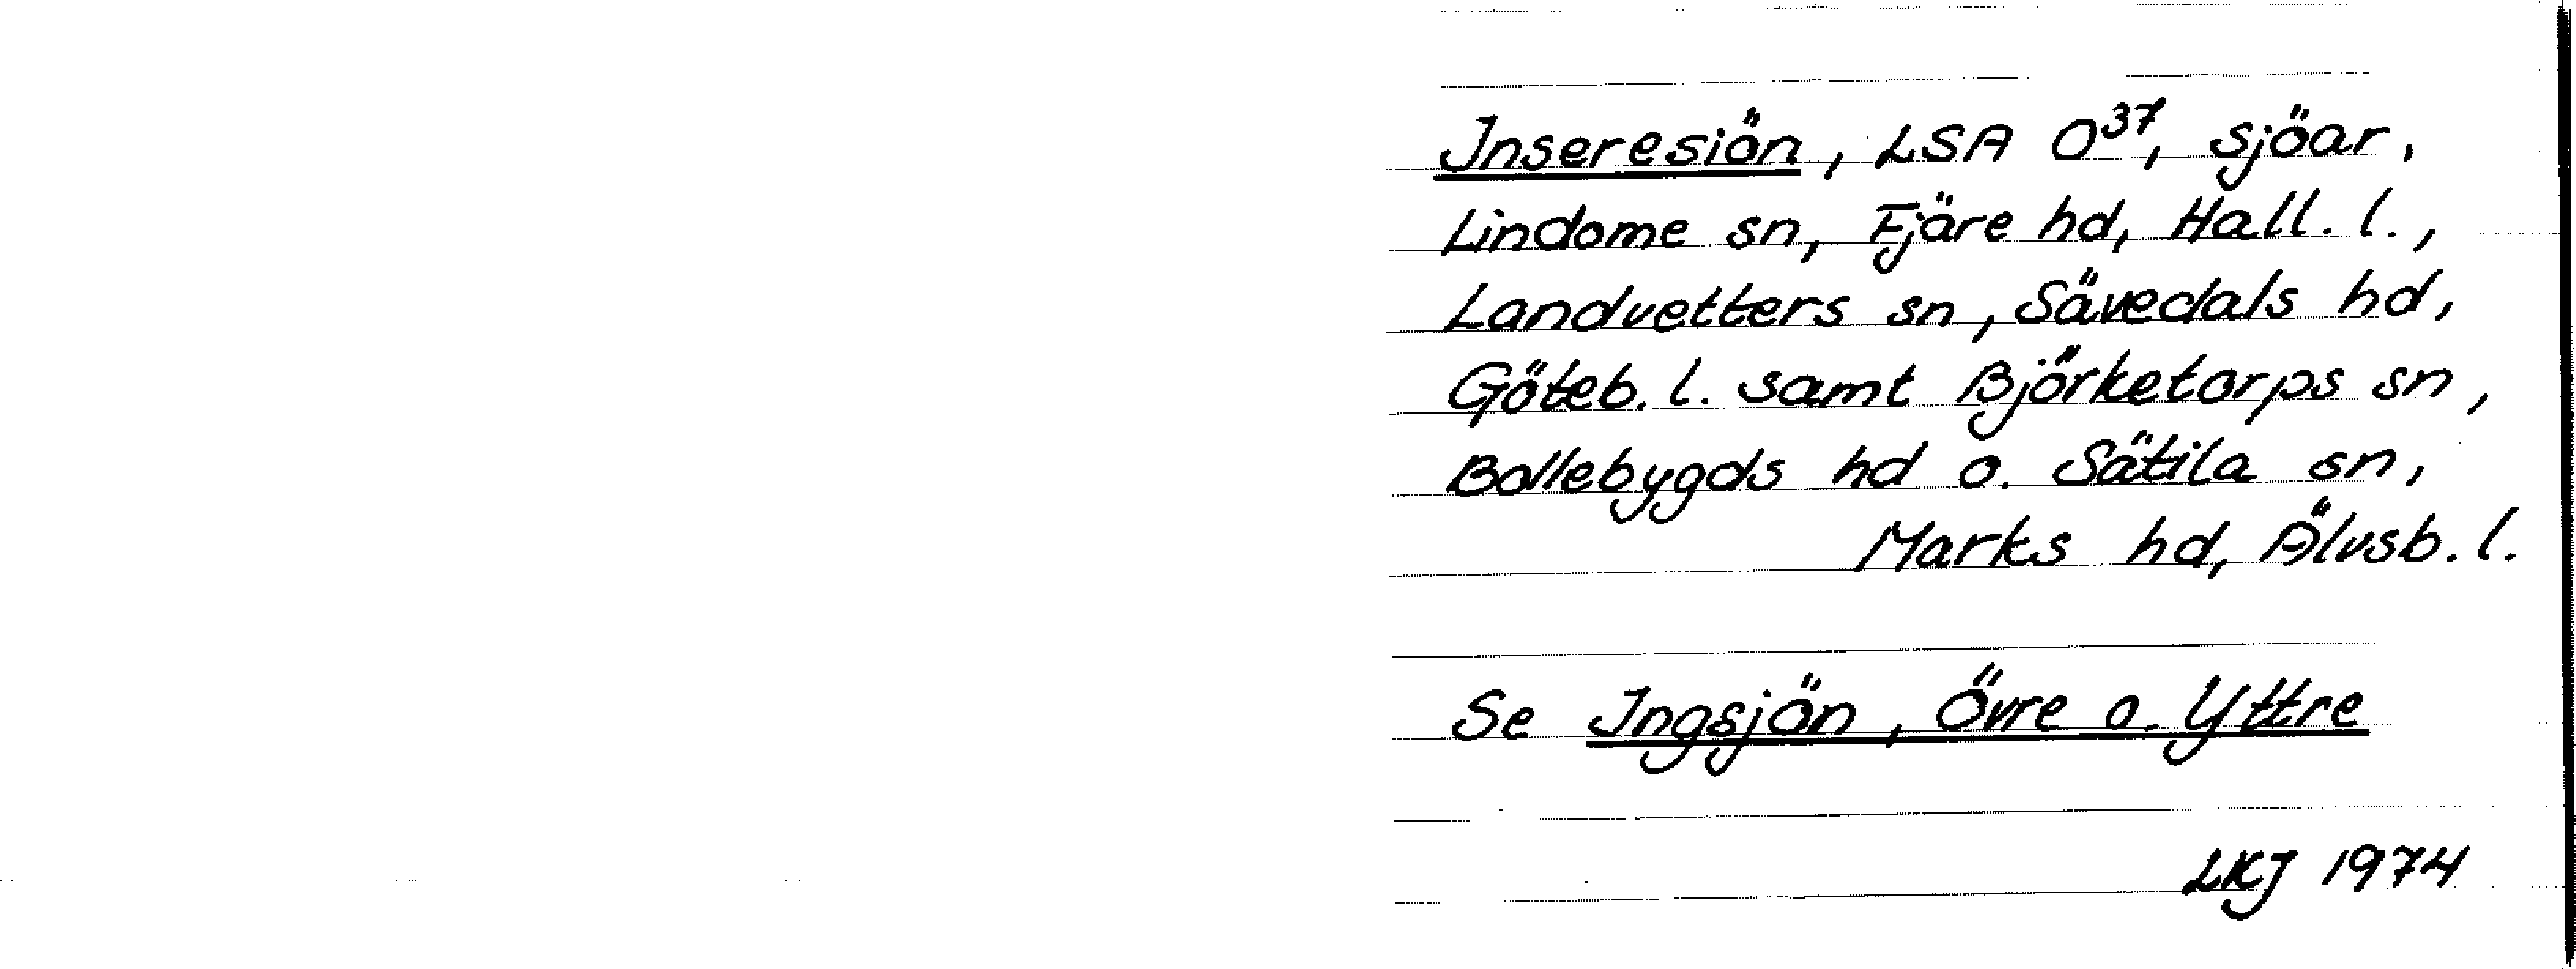 Inseresiön, LSA O³⁷, sjöar,
Lindome sn, Fjäre hd, Hall. l.,
Landvetters sn, Sävedals hd,
Göteb. l. samt Björketorps sn,
Bollebygds hd o. Sätila sn,
Marks hd, Älvsb. l.
Se Ingsjön, Övre o. Yttre
LKJ 1974